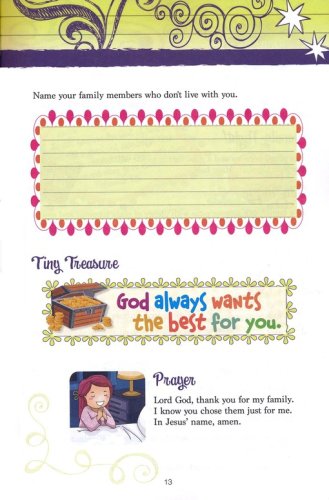 Name your family members who don't live with you.
Tiny Treasure
God always wants
the best for you.
Prayer
Lord God, thank you for my family.
I know you chose them just for me.
In Jesus' name, amen.
13